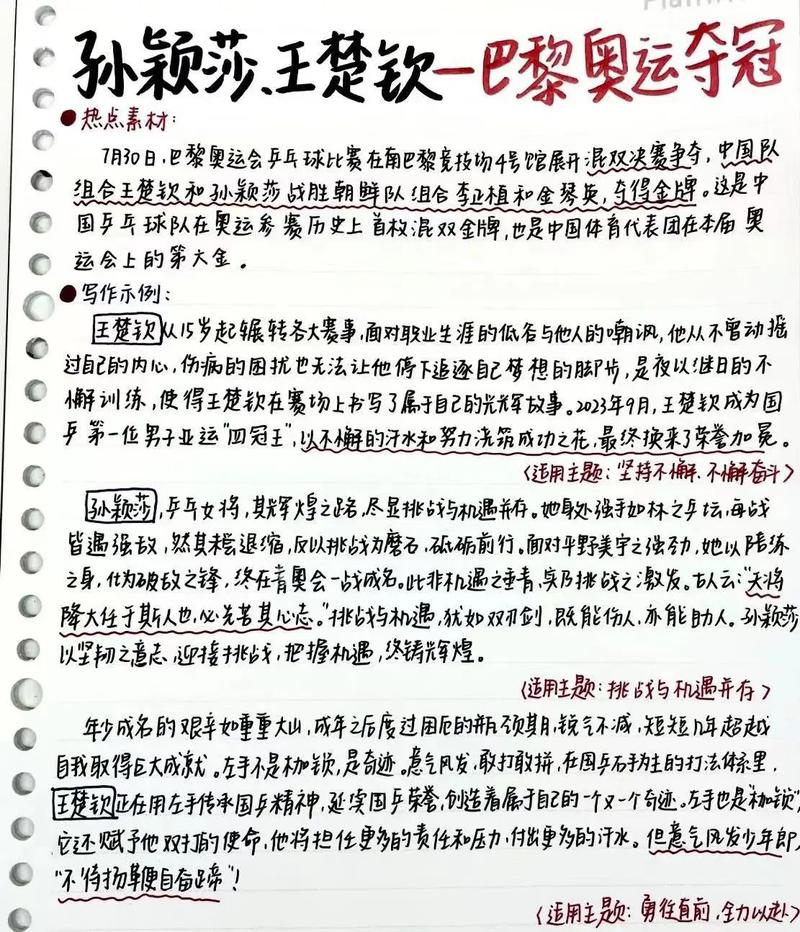 孙颖莎、王楚钦—巴黎奥运夺冠
●热点素材:
7月30日,巴黎奥运会乒乓球比赛在南巴黎竞技场4号馆展开混双决赛争夺,中国队
组合王楚钦和孙颖莎战胜朝鲜队组合李正植和金琴英,夺得金牌。这是中
国乒乓球队在奥运参赛历史上首枚混双金牌,也是中国体育代表团在本届奥
运会上的第六金。
●写作示例:
王楚钦从15岁起辗转各大赛事,面对职业生涯的低谷与他人的嘲讽,他从不曾动摇
过自己的内心,伤病的困扰也无法让他停下追逐自己梦想的脚步,是夜以继日的不
懈训练,使得王楚钦在赛场上书写了属于自己的光辉故事。2023年9月,王楚钦成为国
乒第一位男子亚运“四冠王”,以不懈的汗水和努力浇筑成功之花,最终换来了荣誉加冕。
〈适用主题:坚持不懈、不懈奋斗〉
孙颖莎,乒乓女将,其辉煌之路,尽显挑战与机遇并存。她身处强手如林之乒坛,每战
皆遇强敌,然其未尝退缩,反以挑战为磨石,砥砺前行。面对平野美宇之强劲,她以陪练
之身,化为破敌之锋,终在青奥会一战成名。此非机遇之垂青,实乃挑战之激发。古人云:“天将
降大任于斯人也,必先苦其心志。”挑战与机遇,犹如双刃剑,既能伤人,亦能助人。孙颖莎
以坚韧之意志,迎接挑战,把握机遇,终铸辉煌。
〈适用主题:挑战与机遇并存〉
年少成名的艰辛如重重大山,成年之后度过困厄的瓶颈期,锐气不减,短短几年超越
自我取得巨大成就。左手不是枷锁,是奇迹。意气风发,敢打敢拼,在国乒右手为主的打法体系里,
王楚钦正在用左手传承国乒精神,延续国乒荣誉,创造着属于自己的一个又一个奇迹。左手也是“枷锁”,
它还赋予他双打的使命,他将担任更多的责任和压力,付出更多的汗水。但意气风发少年郎,
“不待扬鞭自奋蹄”!
〈适用主题:勇往直前,全力以赴〉